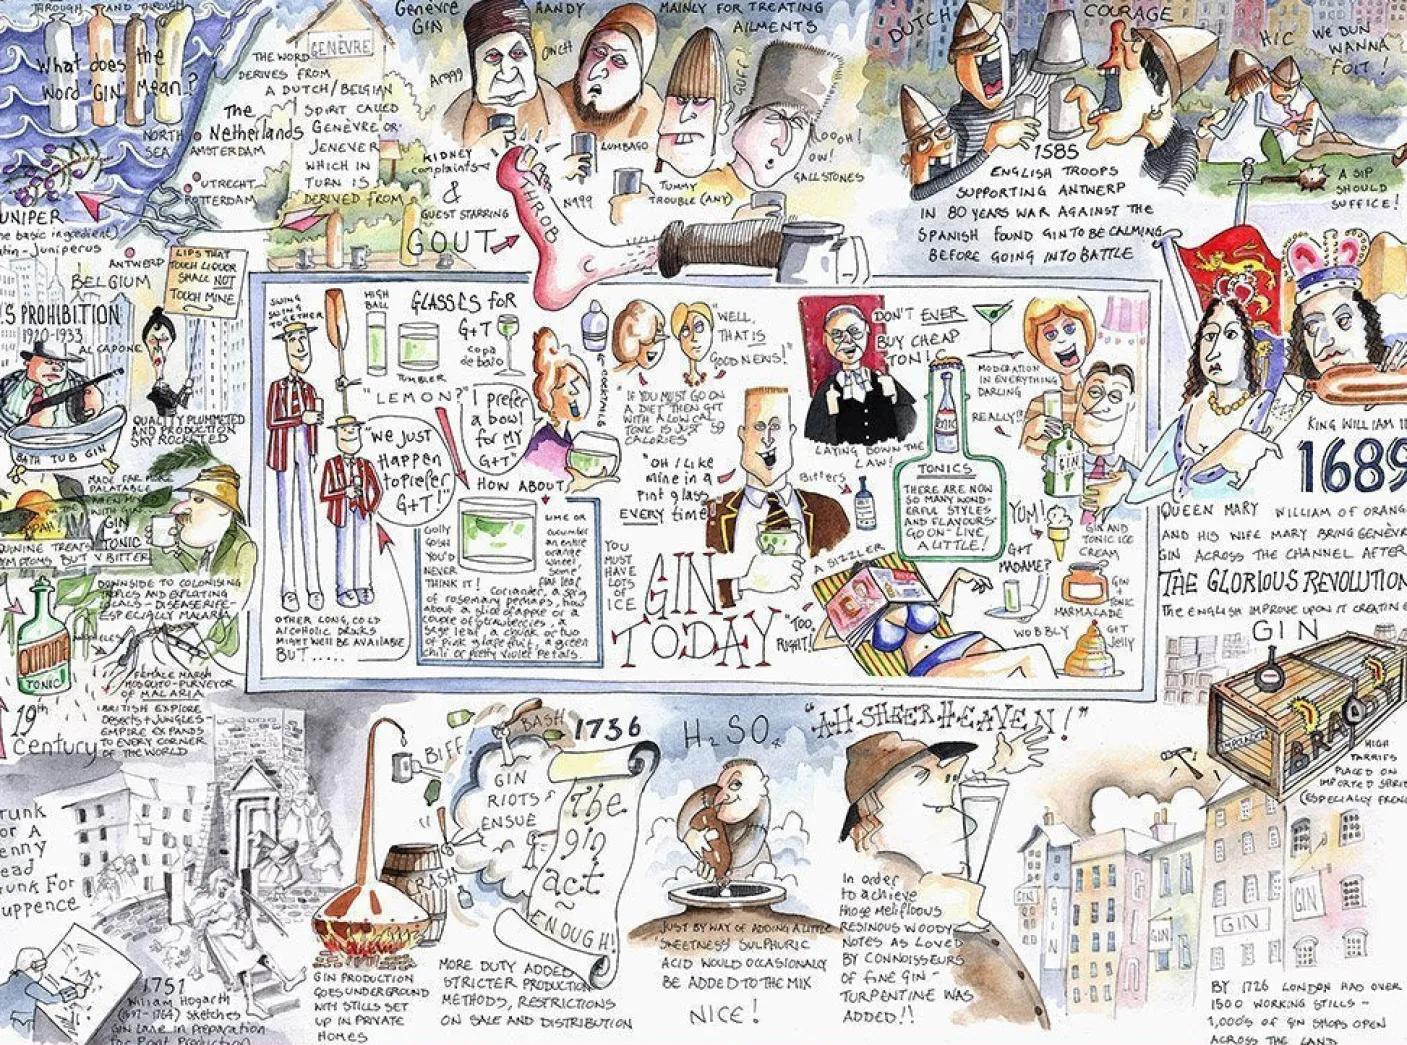 THROUGH AND THROUGH
What does the
Word "GIN" Mean?
NORTH
SEA
The
Netherlands
AMSTERDAM
UTRECHT
ROTTERDAM
ANTWERP
BELGIUM
GENÈVRE
THE WORD
DERIVES FROM
A DUTCH/BELGIAN
SPIRIT CALLED
GENÈVRE OR
JENEVER
WHICH IN
TURN IS
DERIVED FROM
UNIPER
basic ingredient)
Juniperus
Genèvre
GIN
HANDY
MAINLY FOR TREATING
AILMENTS
Argggg
OUCH
GUFF!
OOOH!
OW!
KIDNEY
complaints
LUMBAGO
TUMMY
TROUBLE (ANY)
GALLSTONES
&
GUEST STARRING
GOUT
THROB
DUTCH
COURAGE
HIC
WE DUN
WANNA
FOIT!
1585
ENGLISH TROOPS
SUPPORTING ANTWERP
IN 80 YEARS WAR AGAINST THE
SPANISH FOUND GIN TO BE CALMING
BEFORE GOING INTO BATTLE
A SIP
SHOULD
SUFFICE!
LIPS THAT
TOUCH LIQUOR
SHALL NOT
TOUCH MINE
.S PROHIBITION
1920-1933
AL CAPONE
QUALITY PLUMMETED
AND PRODUCTION
SKY ROCKETED
BATH TUB GIN
MADE FAR MORE
PALATABLE
WHEN MIXED
WITH GIN
GIN
TONIC
UININE TREATS
YMPTOMS BUT V BITTER
DOWNSIDE TO COLONISING
TROPICS AND EXPLOITING
LOCALS - DISEASE RIFE -
ESPECIALLY MALARIA
quinine
TONIC
FEMALE MARSH
MOSQUITO - PURVEYOR
OF MALARIA
19th
Century
BRITISH EXPLORE
DESERTS + JUNGLES -
EMPIRE EXPANDS
TO EVERY CORNER
OF THE WORLD
SWING
SWING
TOGETHER
HIGH
BALL
GLASSES FOR
G+T
copa
de balo
TUMBLER
"LEMON?"
"We Just
Happen
to prefer
G+T!"
"I prefer
a bowl
for MY
G+T"
COCKTAILS
HOW ABOUT
OTHER LONG, COLD
ALCOHOLIC DRINKS
MIGHT WELL BE AVAILABLE
BUT.....
Golly
GOSH
YOU'D
NEVER
THINK IT!
LIME OR
cucumber
an entire
orange
wheel
some
flat leaf
Coriander, a sprig
of rosemary perhaps, how
about a slice of apple or a
couple of strawberries, a
sage leaf, a chunk or two
of pink grapefruit, a green
chili or pretty violet petals.
YOU
MUST
HAVE
LOTS
OF
ICE
WELL,
THAT IS
GOOD NEWS!"
"IF YOU MUST GO ON
A DIET THEN G+T
WITH A LOW CAL
TONIC IS JUST 59
CALORIES
"OH I LIKE
mine in a
Pint glass
EVERY time"
GIN
TODAY
DON'T EVER
BUY CHEAP
TONIC
LAYING DOWN THE
LAW!
Bitters
TONIC
TONICS
THERE ARE NOW
SO MANY WOND-
ERFUL STYLES
AND FLAVOURS
GO ON - LIVE
A LITTLE!
MODERATION
IN EVERYTHING
DARLING
REALLY!?
GIN
A SIZZLER
"TOO
RIGHT!"
YUM!
GIN AND
TONIC ICE
CREAM
G+T
MADAME?
GIN
+
TONIC
MARMALADE
WOBBLY
G+T
Jelly
KING WILLIAM III
1689
QUEEN MARY
WILLIAM OF ORANG
AND HIS WIFE MARY BRING GENÈVR
GIN ACROSS THE CHANNEL AFTER
THE GLORIOUS REVOLUTION
THE ENGLISH IMPROVE UPON IT CREATING
GIN
HIGH
TARRIFS
PLACED ON
IMPORTED SPIRITS
(ESPECIALLY FRENC
runk
or A
enny
ead
runk For
uppence
1751
William Hogarth
(1697-1764) sketches
Gin Lane in preparation
for Print Production
BIFF
BASH
CRASH
GIN
RIOTS
ENSUE
1736
The
gin
act
ENOUGH!
GIN PRODUCTION
GOES UNDERGROUND
WITH STILLS SET
UP IN PRIVATE
HOMES
MORE DUTY ADDED
STRICTER PRODUCTION
METHODS, RESTRICTIONS
ON SALE AND DISTRIBUTION
H2SO4
JUST BY WAY OF ADDING A LITTLE
"SWEETNESS" SULPHURIC
ACID WOULD OCCASIONALLY
BE ADDED TO THE MIX
NICE!
"AH SHEER HEAVEN!"
In order
to achieve
those melifluous
RESINOUS WOODY
NOTES AS LOVED
BY CONNOISSEURS
OF FINE GIN -
TURPENTINE WAS
ADDED!!
GIN
GIN
GIN
GIN
BY 1726 LONDON HAS OVER
1500 WORKING STILLS -
1,000'S OF GIN SHOPS OPEN
ACROSS THE LAND